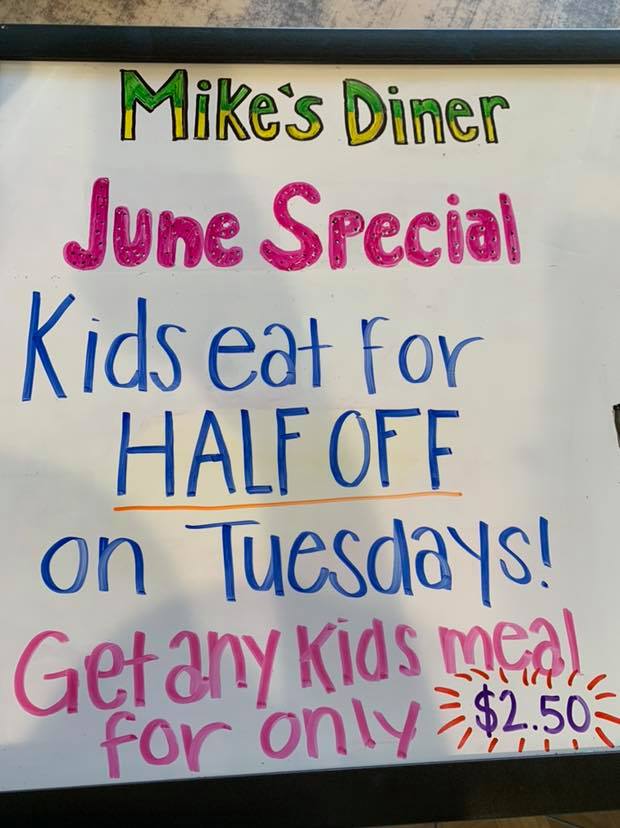 Mike's Diner
June Special
Kids eat for
HALF OFF
on Tuesdays!
Get any Kids meal
for only $2.50